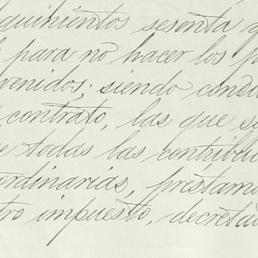 quinientos sesenta y
para no hacer los p
venidos; siendo condi
contrato, las que s
e todas las contribu
ordinarias, prestam
tro impuesto, decreta